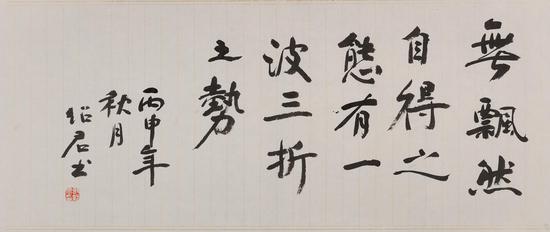 無飄然
自得之
態有一
波三折
之勢
丙申年
秋月
绍君书